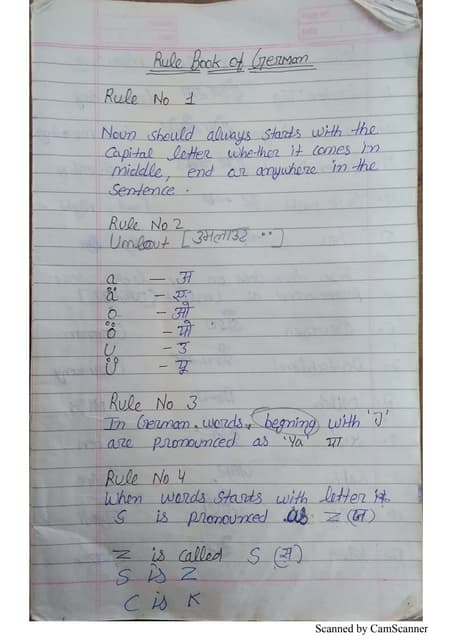 Rule Book of German
Rule No 1
Noun should always starts with the
Capital letter whether it comes in
middle, end or anywhere in the
sentence.
Rule No 2
Umlout [उमलाउट ¨]
a — अ
ä — ए
o — ओ
ö — यो
U — उ
Ü — यू
Rule No 3
In German words, begning with 'J'
are pronounced as 'Ya' या
Rule No 4
When words starts with letter
S is pronounced as Z (ज)
Z is called S (स)
S is Z
C is K
Scanned by CamScanner